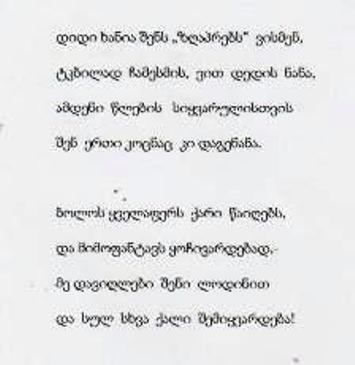 დიდი ხანია შენს „ზღაპრებს“ ვისმენ,
ტკბილად ჩამესმის, ვით დედის ნანა,
ამდენი წლების სიყვარულისთვის
შენ ერთი კოცნაც კი დაგენანა.
ბოლოს ყველაფერს ქარი წაიღებს,
და მიმოფანტავს ყოჩივარდებად,-
მე დავიღლები შენი ლოდინით
და სულ სხვა ქალი შემიყვარდება!